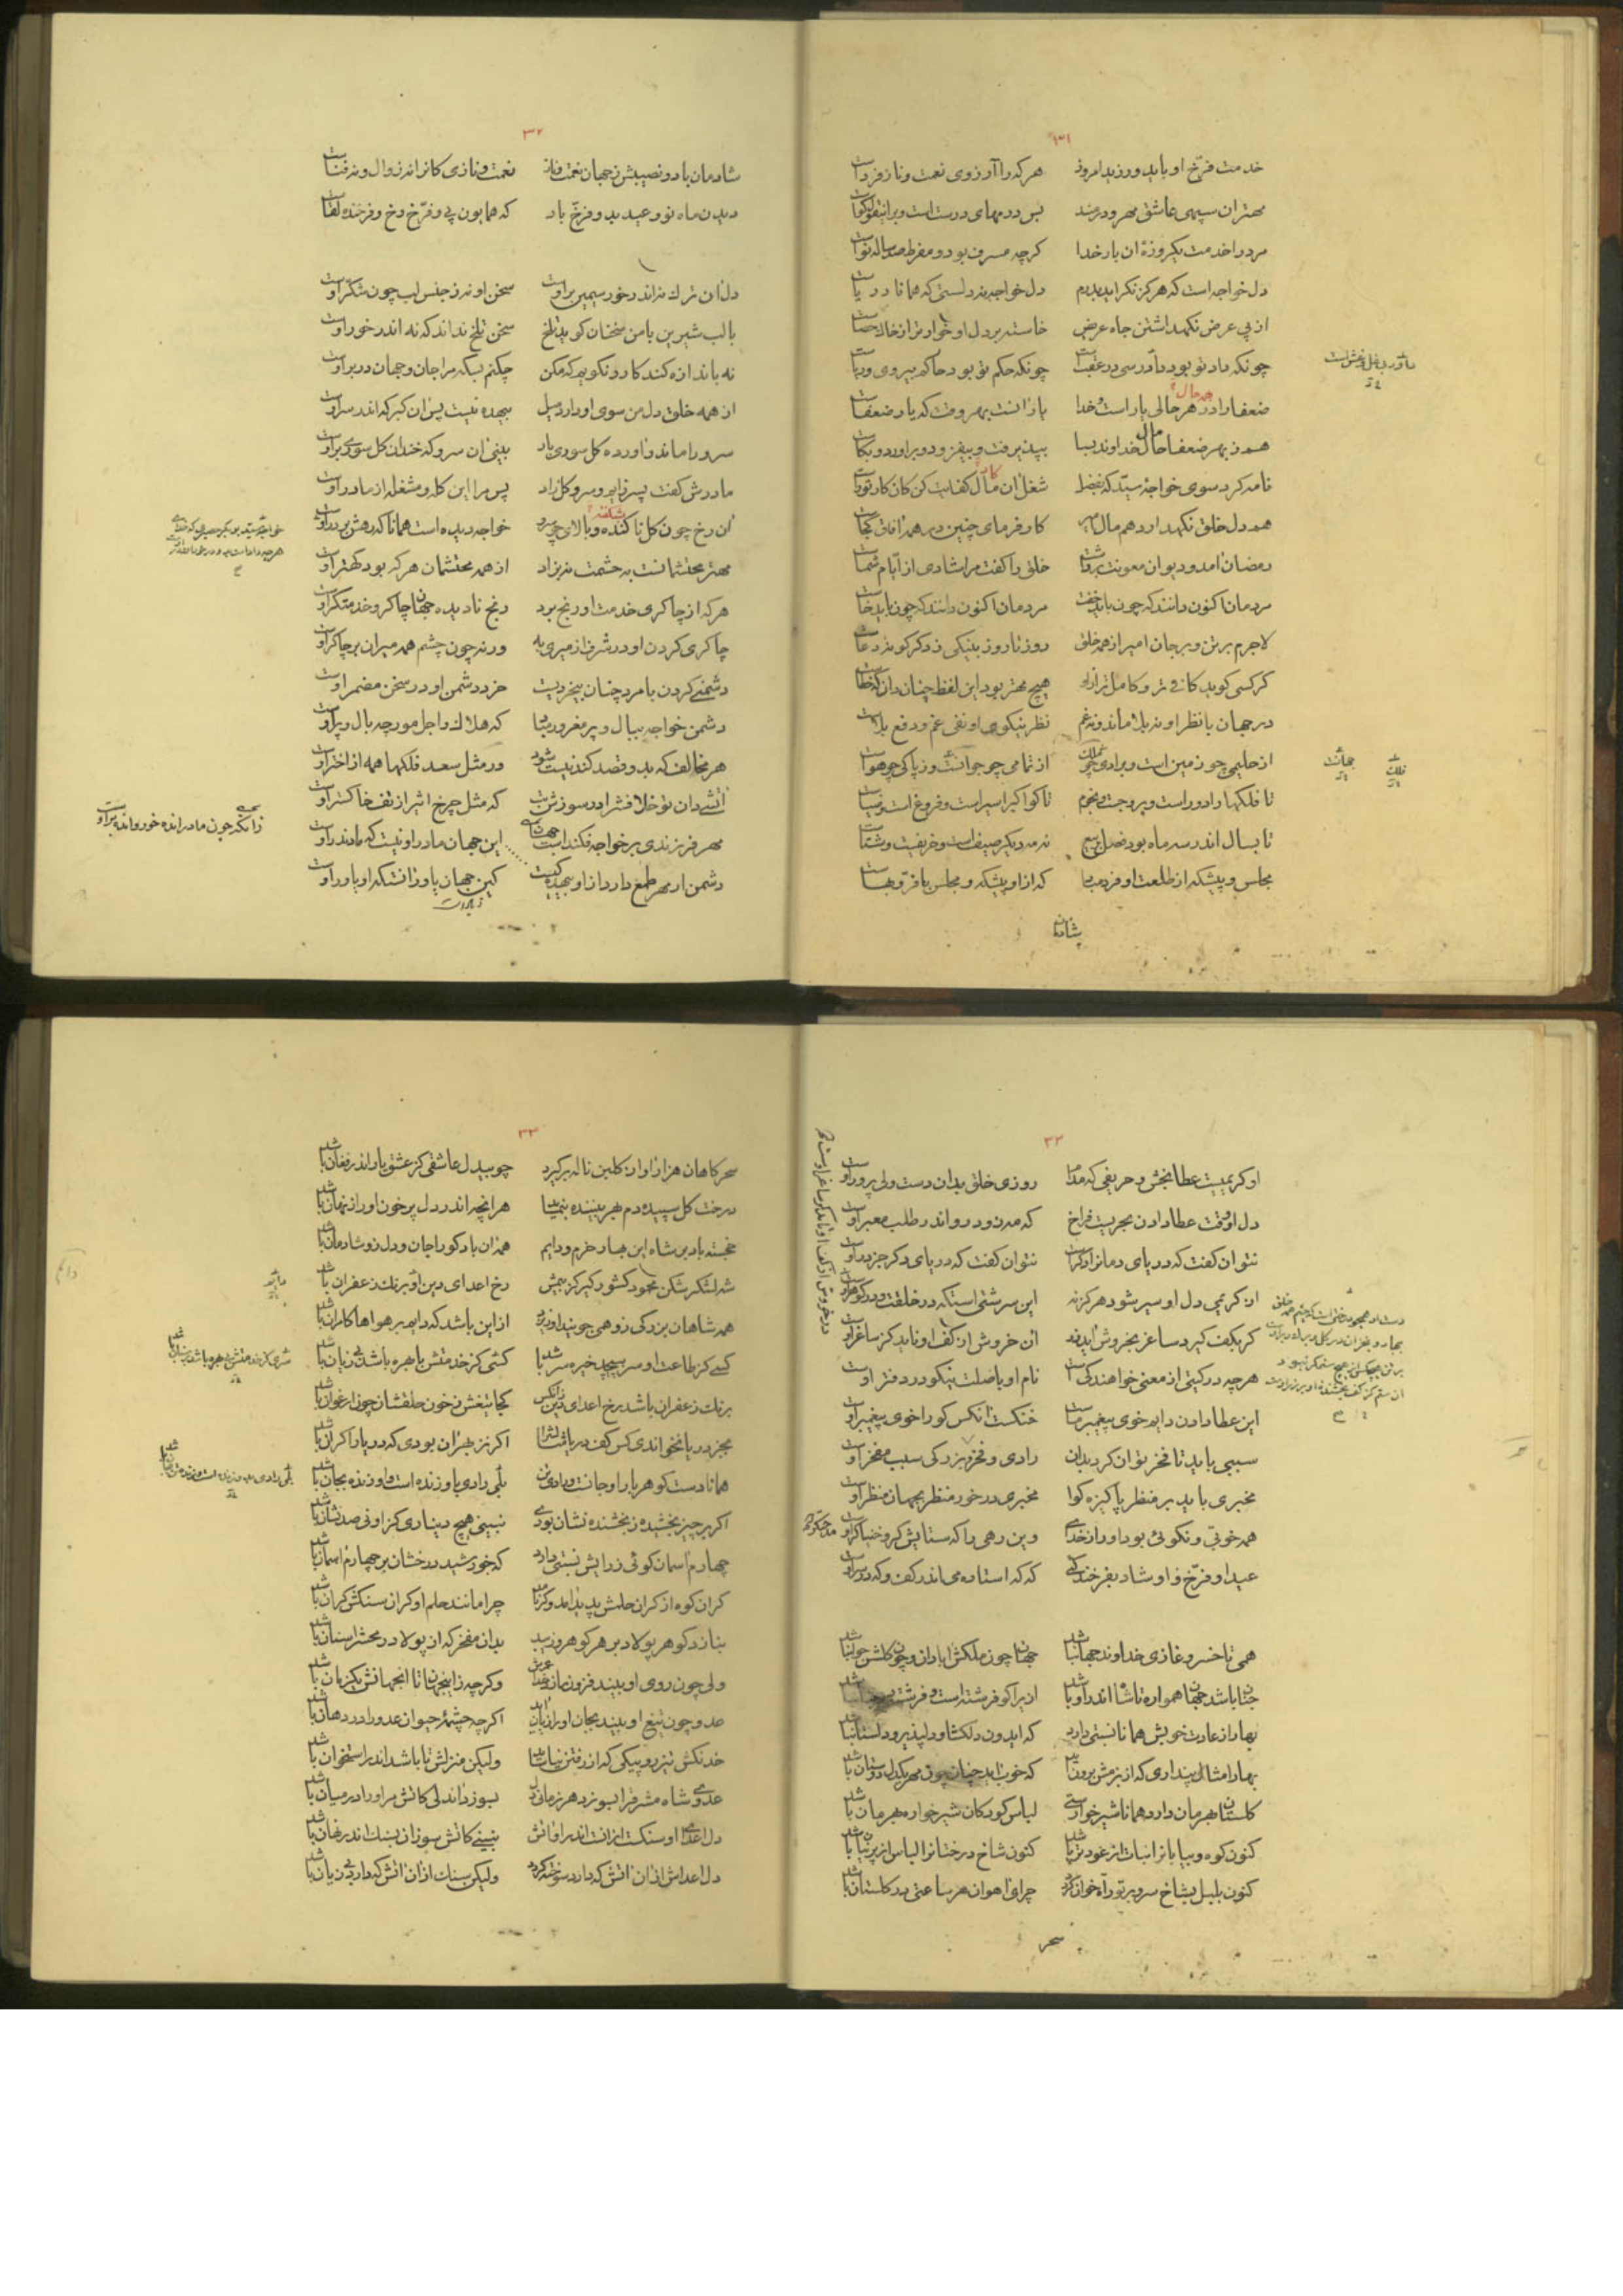 ۳۱
خدمت فرّخ او باید ورزید امروز هر که را آرزوی نعمت و ناز فرداست
مهتران سپهی عاشق مهر و درمند بس درمهای درستست و برین قول گواست
مرد را خدمت یکروزهٔ آن بار خدا گرچه مسرف بود و مفرط صد ساله نواست
دل خواجه است که هرگز نگراید بدرم دل خواجه نه دلستی که همانا دریاست
از پی عرض نگهداشتن جاه عرض خاسته بر دل او خوارتر از خاک حصاست
چونکه داد تو بود دادرسی در عقبست چونکه حکم تو بود حاکم بیروی و ریاست
ضعفا را در هر حالی یار است خدا یار آنست بهر وقت که یار ضعفاست
همه حال
هم ز بهر ضعفا مال خداوند بسا بپذیرفت و بیفزود و برآورد و بکاست
نامه کرد سوی خواجهٔ سید که بفضل شغل آن مال کفایت کن کان کار تراست
کار
هم دل خلق نگهدارد هم مال امیر کارفرمای چنین در همه آفاق کجاست
رمضان آمد و دیوان معونت برداشت خلق را گفت مرا شادی از ایام شماست
مردمان اکنون دانند که چون باید خفت مردمان اکنون دانند که چون باید خاست
لاجرم بر تن و بر جان امیر از همه خلق روز تا روز بنیکی ز دگرگونه دعاست
گر کسی گوید کافی تر و کاملتر ازو هیچ مهتر بود این لفظ چنان دان که خطاست
در جهان با نظر او نه بلا ماند و نه غم نظر نیکوی او نفی غم و دفع بلاست
از حلیمی چو زمین است و برادی چو از تمامی چو جهانست و ز پاکی چو هواست
تا فلکها را دور است و بروجست و نجوم تا کواکب را سیر است و فروغست و ضیاست
تا بسال اندر سه ماه بود فصل ربیع نه مه دیگر صیف است و خریفست و شتاست
مجلس و پیشگه از طلعت او فرد مباد که ازو پیشگه و مجلس با فرّ و بهاست
شادمان
۳۲
شادمان باد و نصیبش ز جهان نعمت و ناز نعمت و نازی کانرا نه زوال و نه فناست
دیدن ماه نو و عید بدو فرّخ باد که همایون پی و فرّخ رخ و فرخنده لقاست
دل آن ترک نه اندر خور سیمین بر اوست سخن او نه ز جنس لب چون شکر اوست
با لب شیرین با من سخنان گوید تلخ سخن تلخ نداند که نه اندر خور اوست
نه باندازه کند کار و نگویم که مکن چکنم بسکه مرا جان و جهان در بر اوست
از همه خلق دل من سوی او دارد میل بیهده نیست پس آن کبر که اندر سر اوست
سرو را ماند و آورده گل سوری بار بینی آن سرو که خندان گل سوری بر اوست
مادرش گفت پسر زایم و سرو و گل زاد پس مرا این گله و مشغله از مادر اوست
آن رخ چون گل ناکنده و بالای چو سرو خواجه دیده است همانا که رهش بر در اوست
شکفته
خواجهٔ سید بوبکر حصیری که خدای هرچه داده است بدو در خور او و اندر اوست
مهتر محتشمانست به حشمت نه بزاد از همه محتشمان هر که بود کهتر اوست
هر که از چاکری خدمت او رنج برد رنج نادیده جهان چاکر و خدمتگر اوست
چاکری کردن او در شرف از میری به ورنه چون چشم همه میران بر چاکر اوست
دشمنی کردن با مرد چنان بیخردیست خرد دشمن او در سخن مضمر اوست
دشمن خواجه ببال و پر مغرور مباد که هلاک و اجل مورچه بال و پر اوست
هر مخالف که بدو قصد کند نیست شود ور مثل سعد فلکها همه از اختر اوست
آتشی دان تو خلافش را در سوزش که مثل چرخ اثیر از تف خاکستر اوست
زانکه چون مادر رانده خور و رانده بر اوست
مهر فرزندی بر خواجه فکندست جهان این جهان مادر او نیست که مادندر اوست
دشمن ار مهر طمع دارد ازو بیهده گیست کین جهان یاور آنست که او یاور اوست
۳۲
او کریمیست عطا بخش و حریفی که مدام روزی خلق بدان دست ولی پرور اوست
دل او وقت عطا دادن بحریست فراخ که مه زود رو اندر طلب معبر اوست
نتوان گفت که دریای دمان را کرم است نتوان گفت که دریای دگر جز در اوست
از کریمی دل او سیر شود هرگز نه این سرشتی است که در خلقت و در گوهر اوست
گر بکف گیرد ساغر بخروش آید زر آن خروش از کف او ناید کز ساغر اوست
هرچه در گیتی از معنی خواهندگی است نام او با صلت نیکو در دفتر اوست
این عطا دادن دایم خوی پیغمبر ماست خنکست آنکس کو را خوی پیغمبر اوست
سببی باید تا فخر توان کرد بدان رادی و فخر و بزرگی سبب مفخر اوست
مخبری باید بر منظر پاکیزه گوا مخبری در خور منظر بجهان منظر اوست
همه خوبی و نکوئی بود او را ز خدای وین رهی را که ستایشگر و خنیاگر اوست
مدحتگوی
عید او فرّخ و او شاد بفرخندگی که که استاده می اندر کف و گه در سر اوست
همی تا خسرو غازی خداوند جهان باشد جهان چون ملکش آبادان و چون گلشن جوان باشد
جنان باشد جهان همواره تا شاه اندر او باشد ازیرا کو فرشته است و فرشته در
بهار از عادت خویش همانا نسبتی دارد که ایدون دلکشا و دلپذیر و دلستان باشد
بهار امثال پنداری که از بزمش برون آمد که خوب آید چنان چون مهر یکدل دوستان باشد
گلستان بهرمان دارد همانا شیرخوارستی لباس کودکان شیرخواره بهرمان باشد
کنون کوه و بیابانرا نبات از عود تر باشد کنون شاخ درختانرا لباس از پرنیان باشد
کنون بلبل بشاخ سرو بر توراة خوان گردد چرای آهوان هر ساعتی در گلستان باشد
سحر
۳۳
سحرگاهان هزار آوا ز گلبن ناله برگیرد چو بیدل عاشقی کز عشق یار اندر فغان باشد
درخت گل سپیده دم بهر بیننده بنماید هر آنچه اندر دل پر خون او راز نهان باشد
خجسته باد بر شاه این بهار خرم و دایم همه زان باد کو را جان و دل زو شادمان باشد
شه لشکر شکن محمود کشور گیر کز بیمش رخ اعدای دین او برنگ زعفران باشد
همه شاهان بزرگی زو همی جویند او زیزد از این باشد که دایم بر هواها کامران باشد
کسی کز طاعت او سر بپیچد خیره سر باشد کسی کز خدمتش با بهره باشد بی زیان باشد
برنگ زعفران باشد رخ اعدای دین زانکس کجا تیغش ز خون حلقشان چون ارغوان باشد
بجز دریا نخواندی کس کف دریا مثالش را اگر نز بهر آن بودی که دریا را کران باشد
همانا دست گوهر بار او جانست و رادی تن بلی رادی باو زنده است و او زنده بجان باشد
اگر بر چیز بخشیده ز بخشنده نشان بودی نبینی هیچ دیناری کزو نی صد نشان باشد
چهارم آسمان گوئی ز رایش نسبتی دارد که خورشید درخشان بر چهارم آسمان باشد
گران کوه از گران حلمش پدید آمد وگرنه چرا مانند حلم او گران سنگش گران باشد
بنازد گوهر پولاد بر هر گوهر و زیبد بدان مفخر که از پولاد در محشر سنان باشد
ولی چون روی او بیند فزون از عمر وگرچه زینجهان تا آنجهانش یکزمان باشد
عدو چون تیغ او بیند بجان او را زیان آید اگر چه چشمهٔ حیوان عدو را در دهان باشد
خدنگش تیز رو پیکی که از رفتن نیاساید ولیکن منزلش تا باشد اندر استخوان باشد
عدوی شاه مشرق را بسوزد هر زمانی دل بسوزد آن دلی کآتش مر او را در میان باشد
دل اعدای او سنگست ازانست اندر او آتش نبینی کاتش سوزان بسنگ اندر نهان باشد
دل اعداش ازان آتش که دارد سوخته گردد ولیکن سنگ ازان آتش که دارد بی زیان باشد